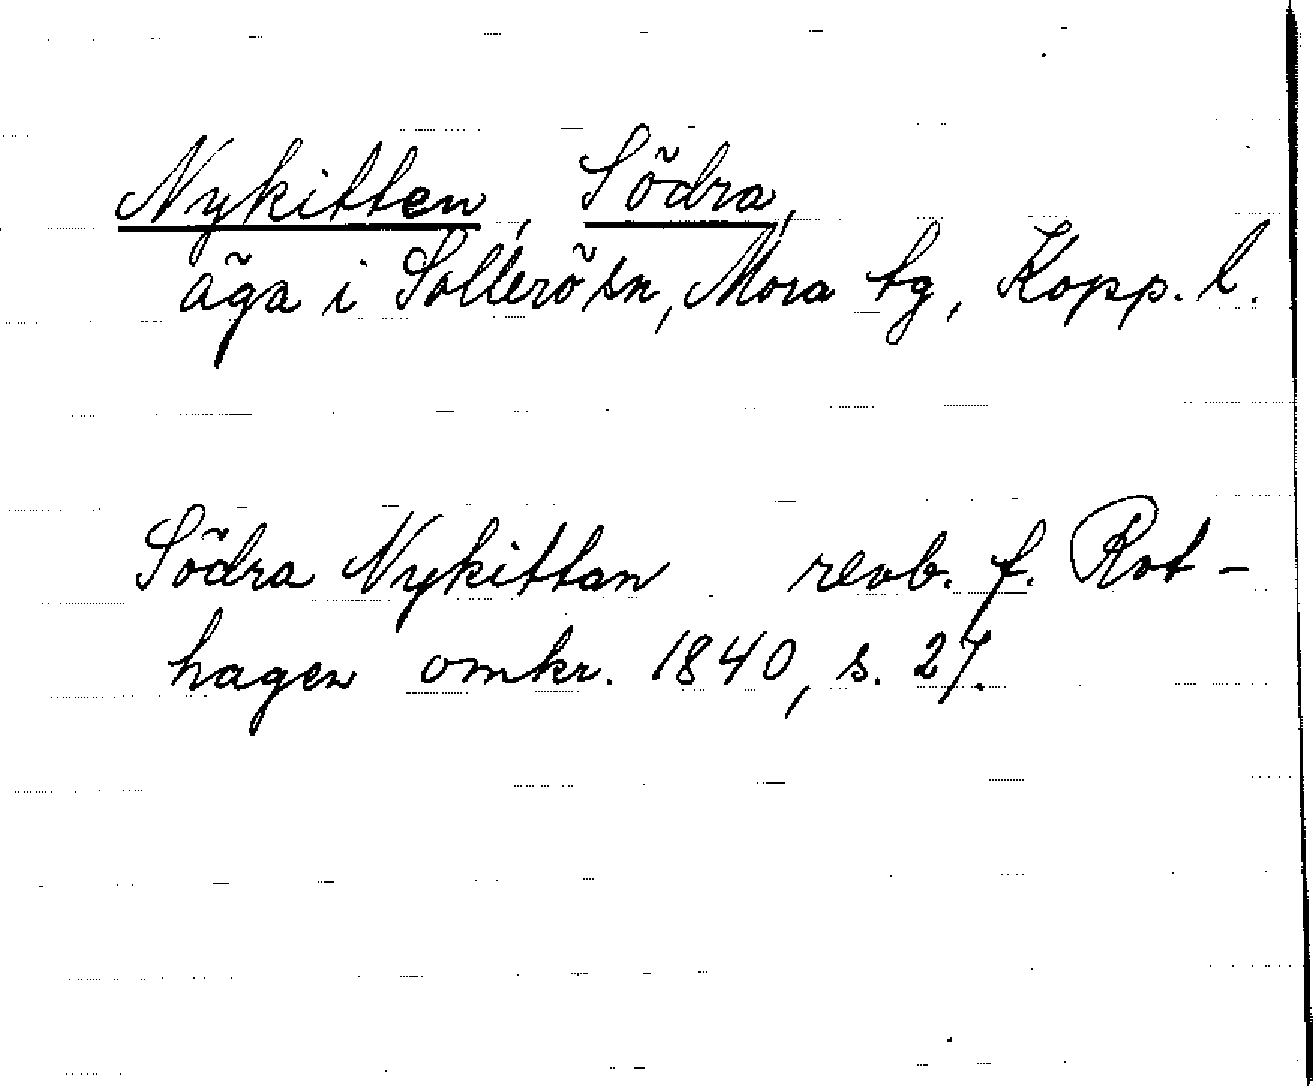 Nykitten, Södra,
äga i Sollerö sn, Mora tg, Kopp. l.
Södra Nykittan revb. f. Rot-
hagen omkr. 1840, s. 27.